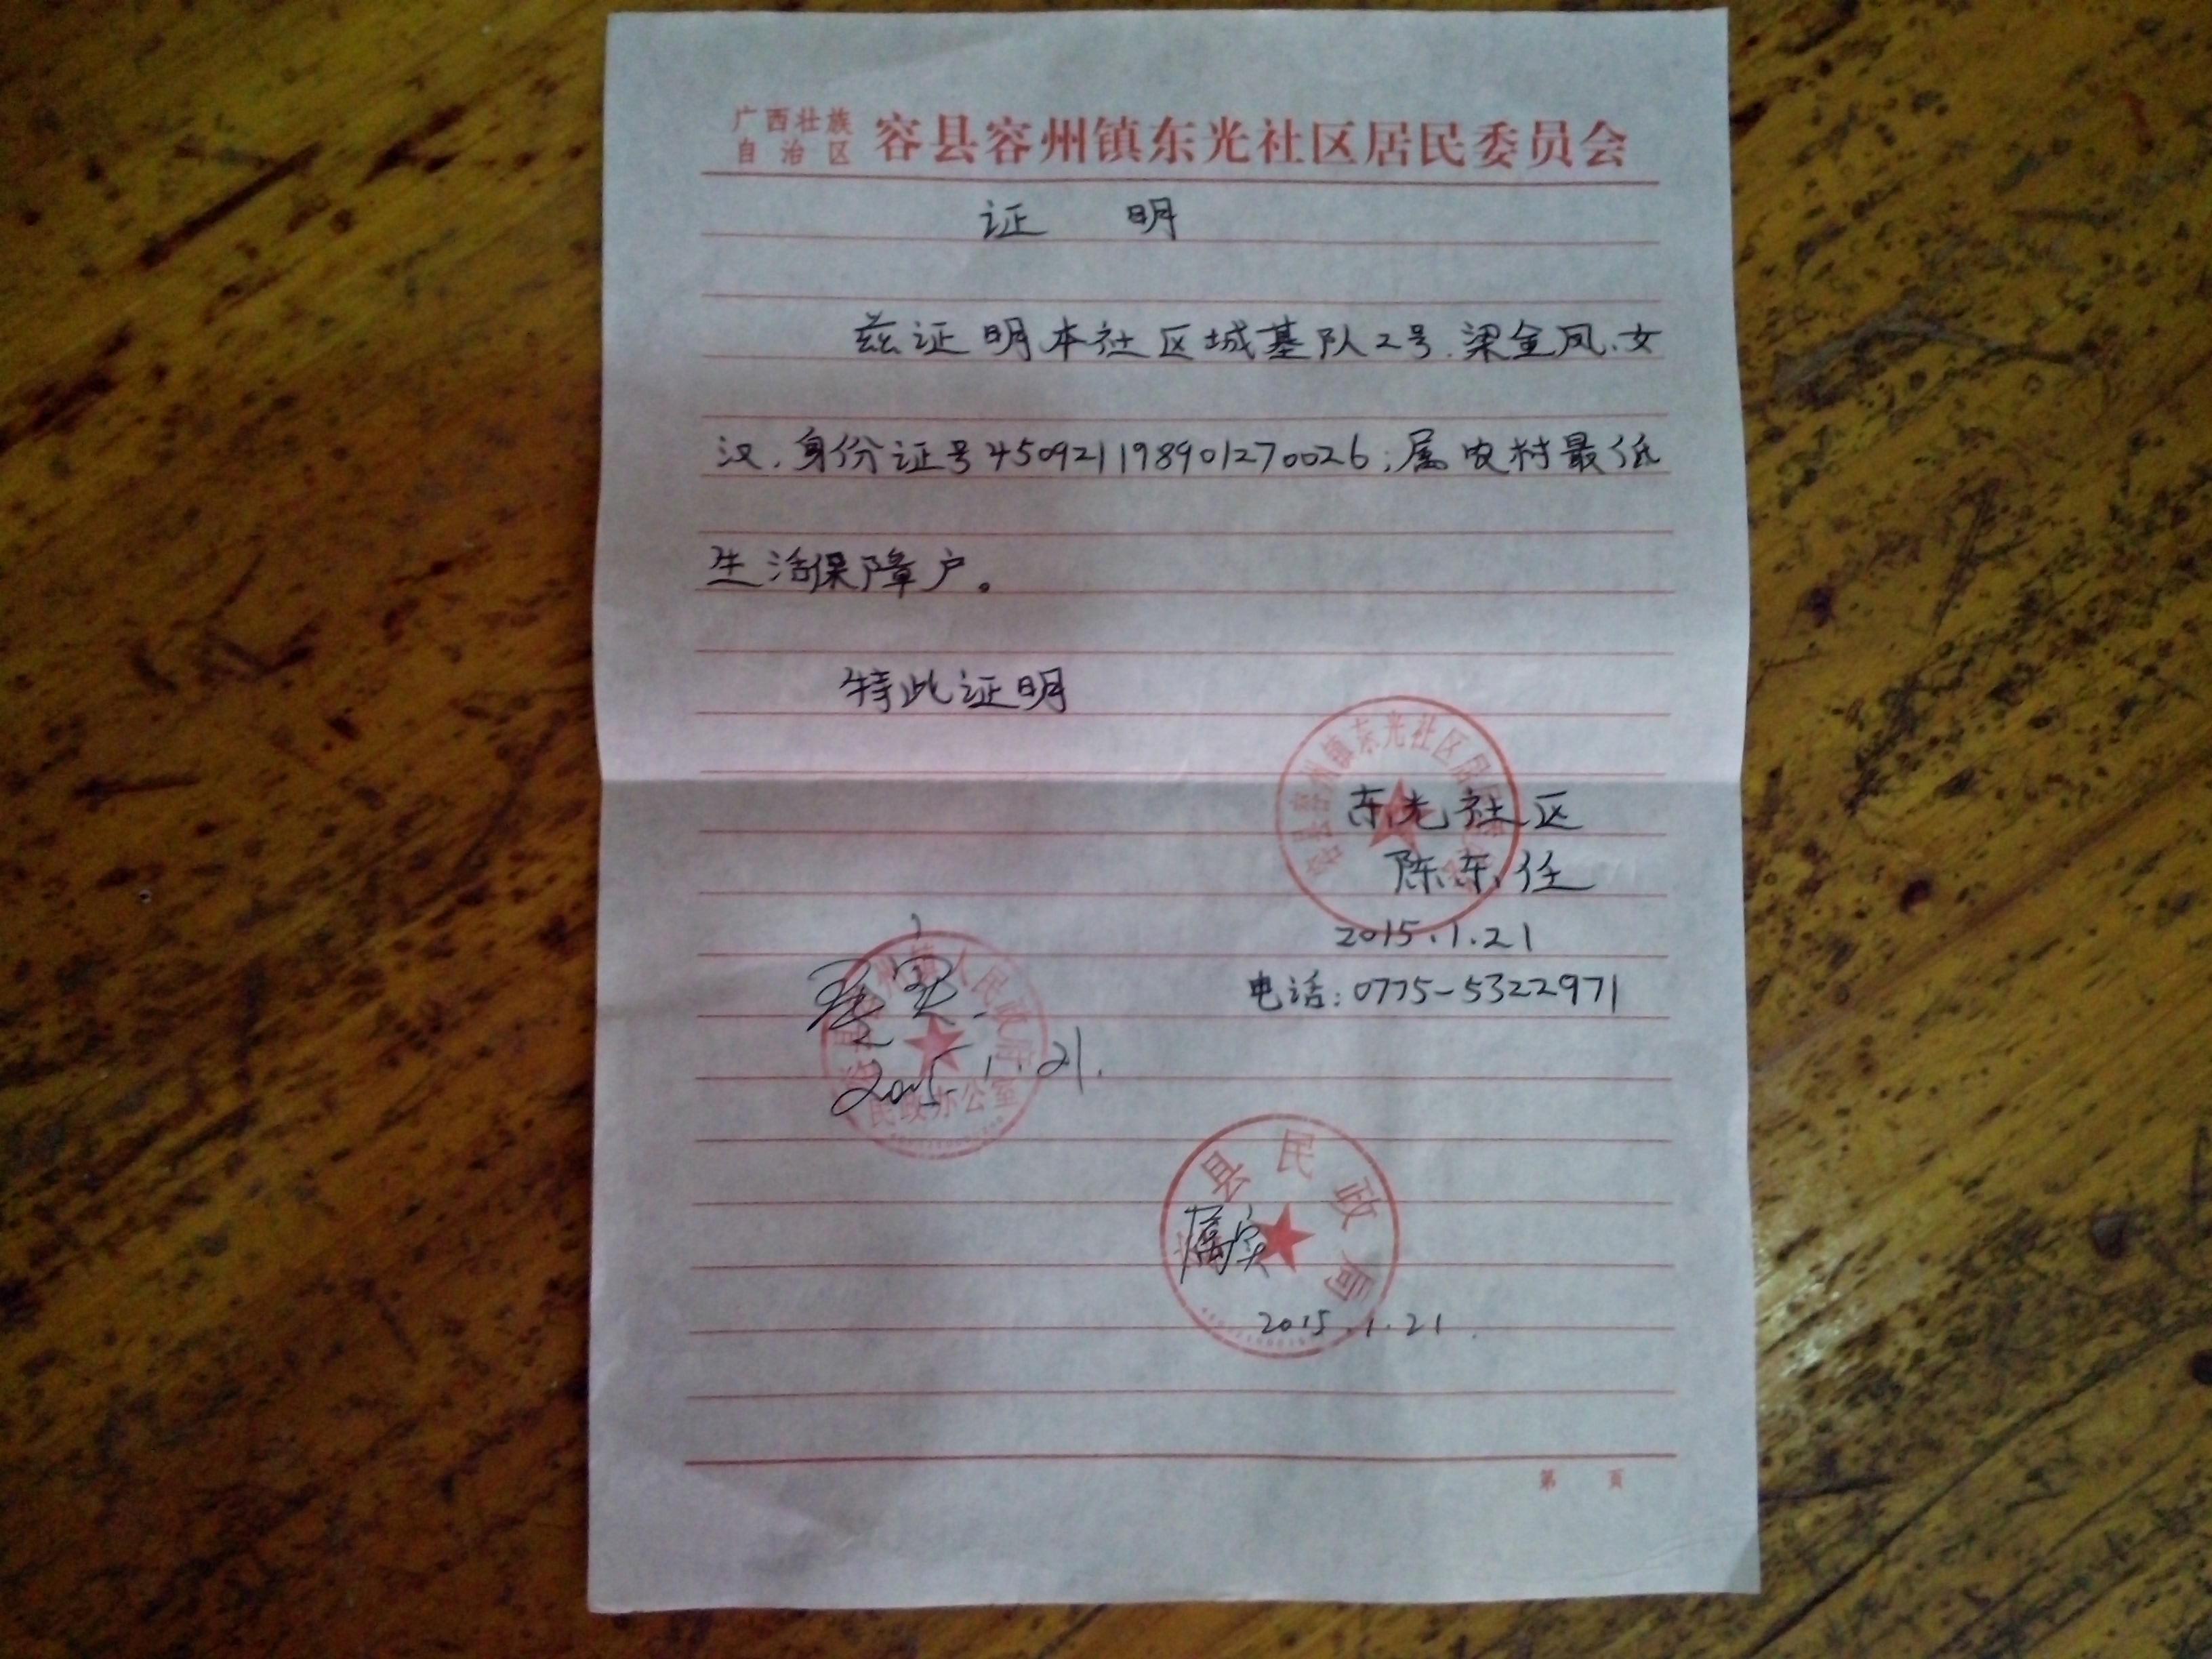 广西壮族
自治区
容县容州镇东光社区居民委员会
证 明
兹证明本社区城基队2号.梁金凤、女
汉.身份证号450921198901270026;属农村最低
生活保障户。
特此证明
容县容州镇东光社区居民委员会
东光社区
陈东任
2015.1.21
电话:0775-5322971
容县容州镇人民政府
民政办公室
属实.
2015.1.21.
容县民政局
属实
2015.1.21.
第 页